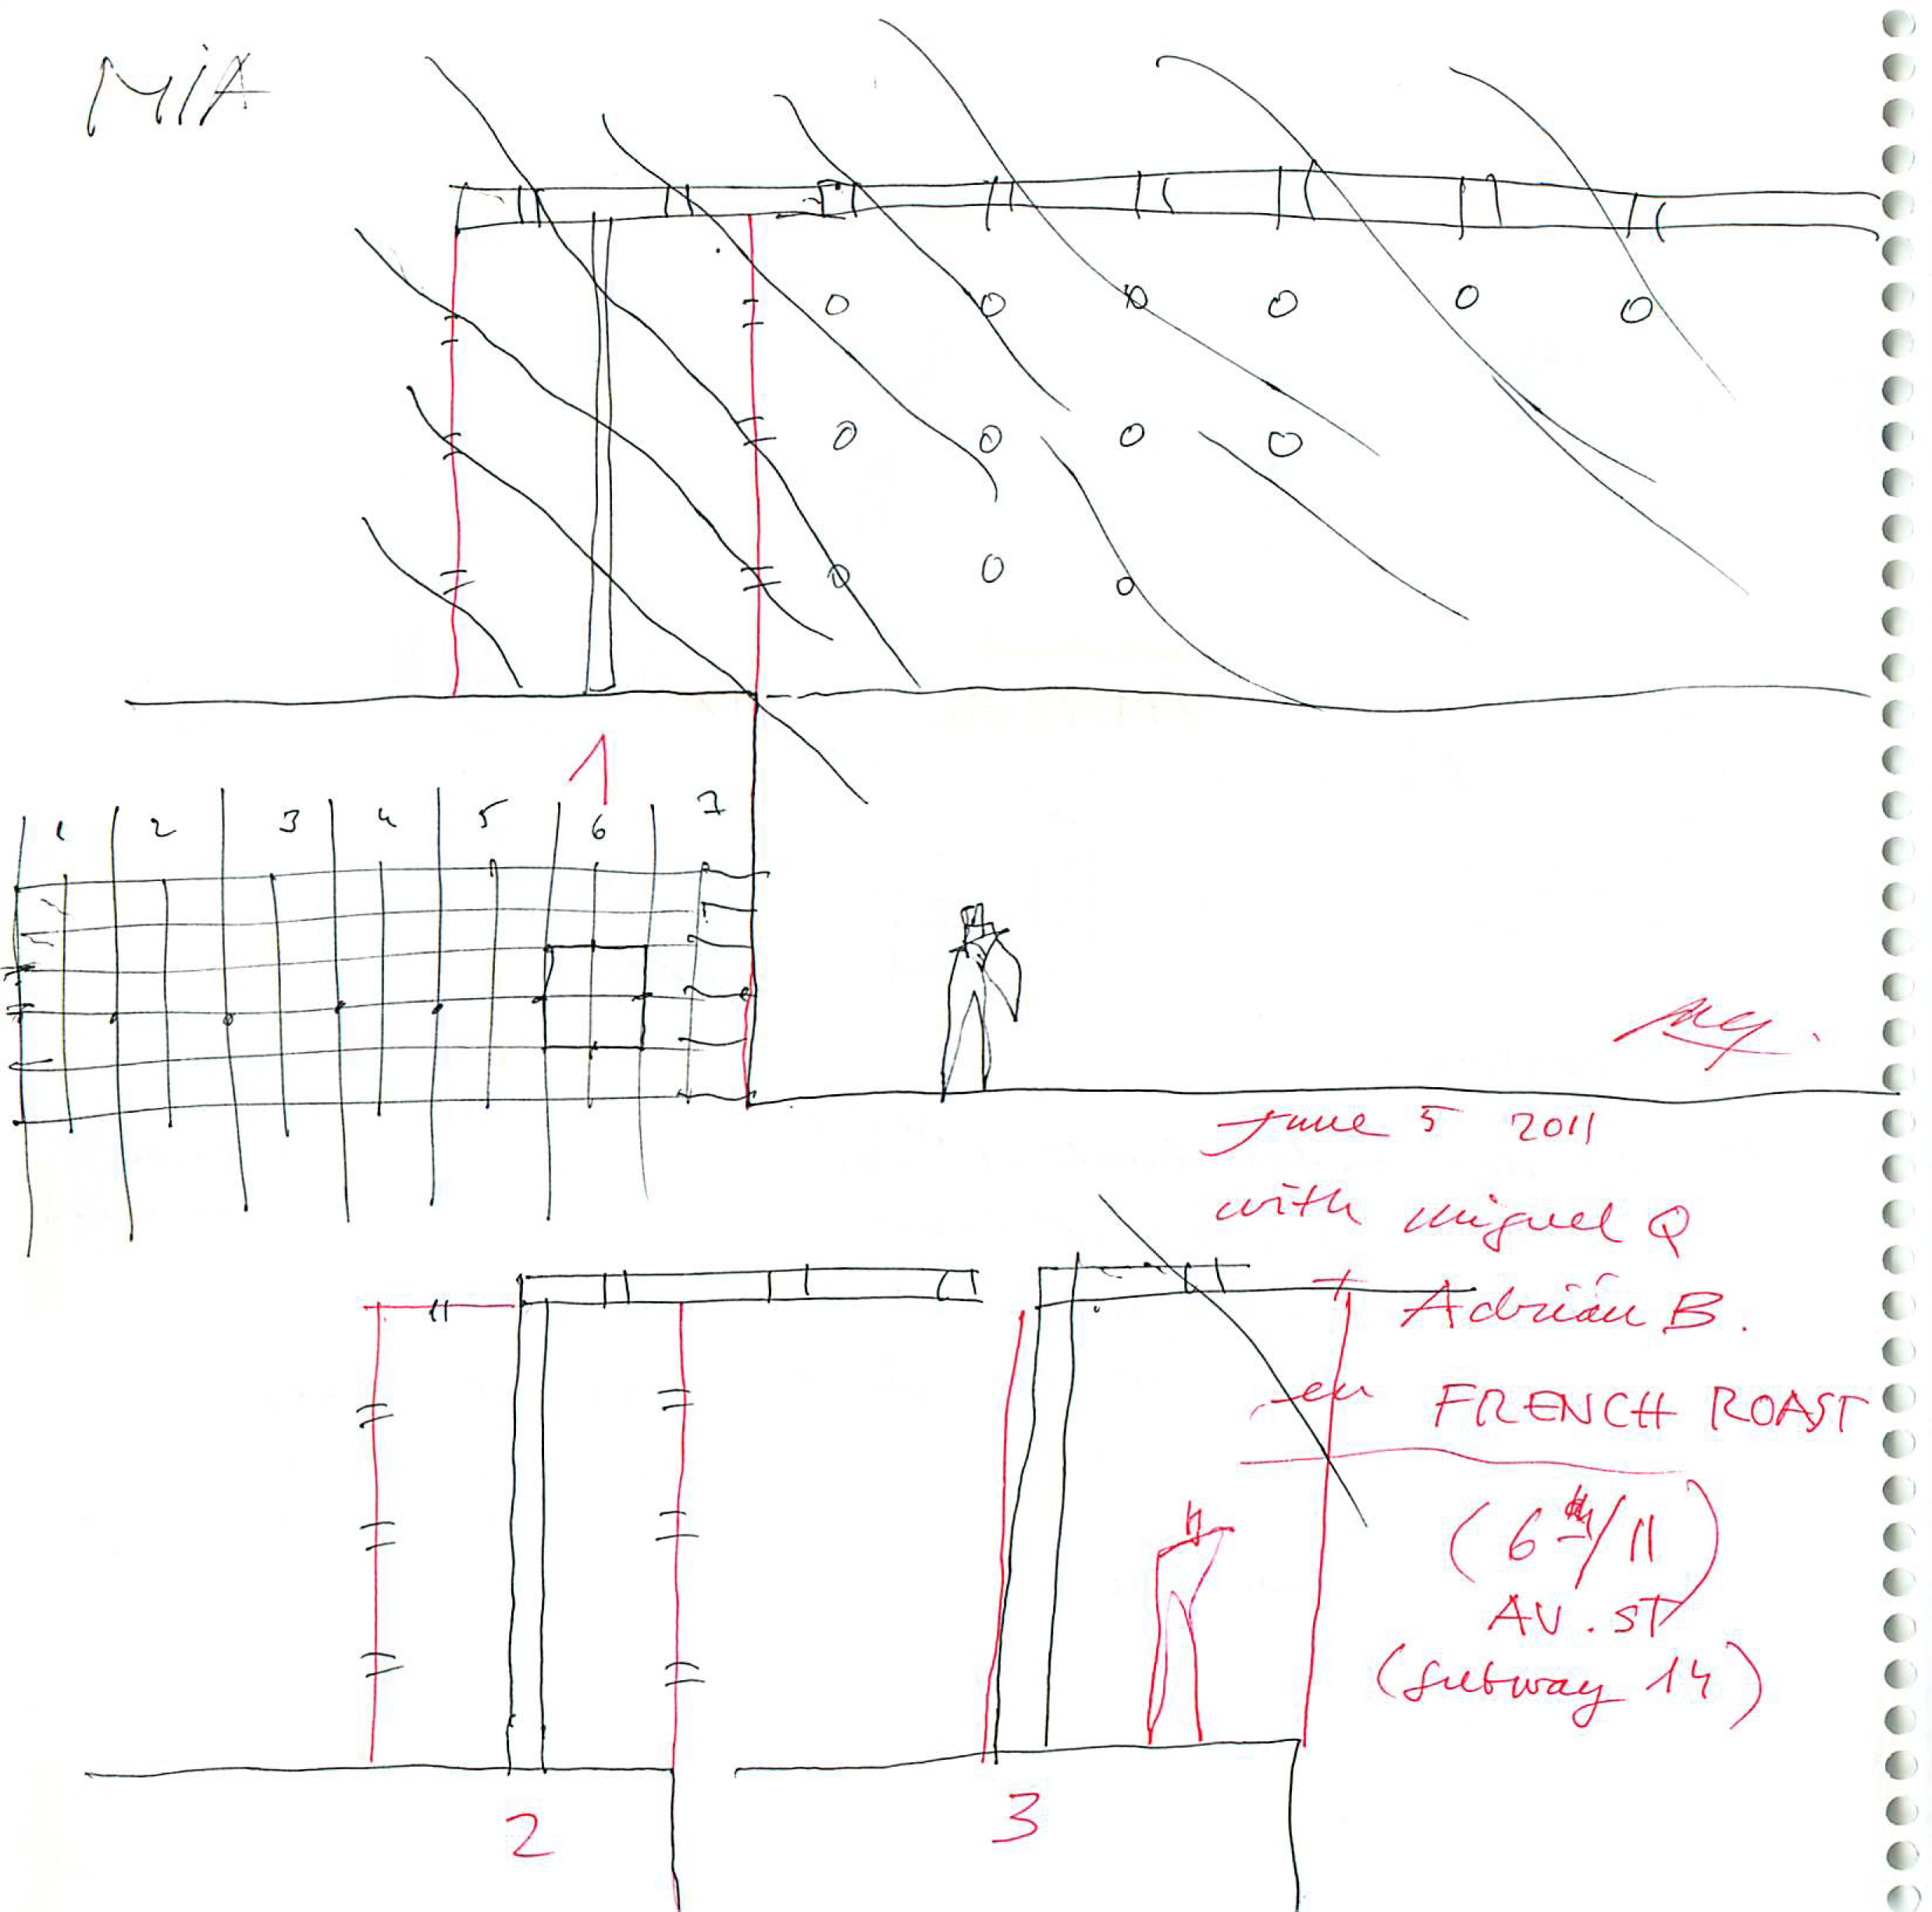 MiA
1
1 2 3 4 5 6 7
June 5 2011
with Miguel Q
Adrián B.
en FRENCH ROAST
(6th/11)
AV. ST
(subway 14)
2
3